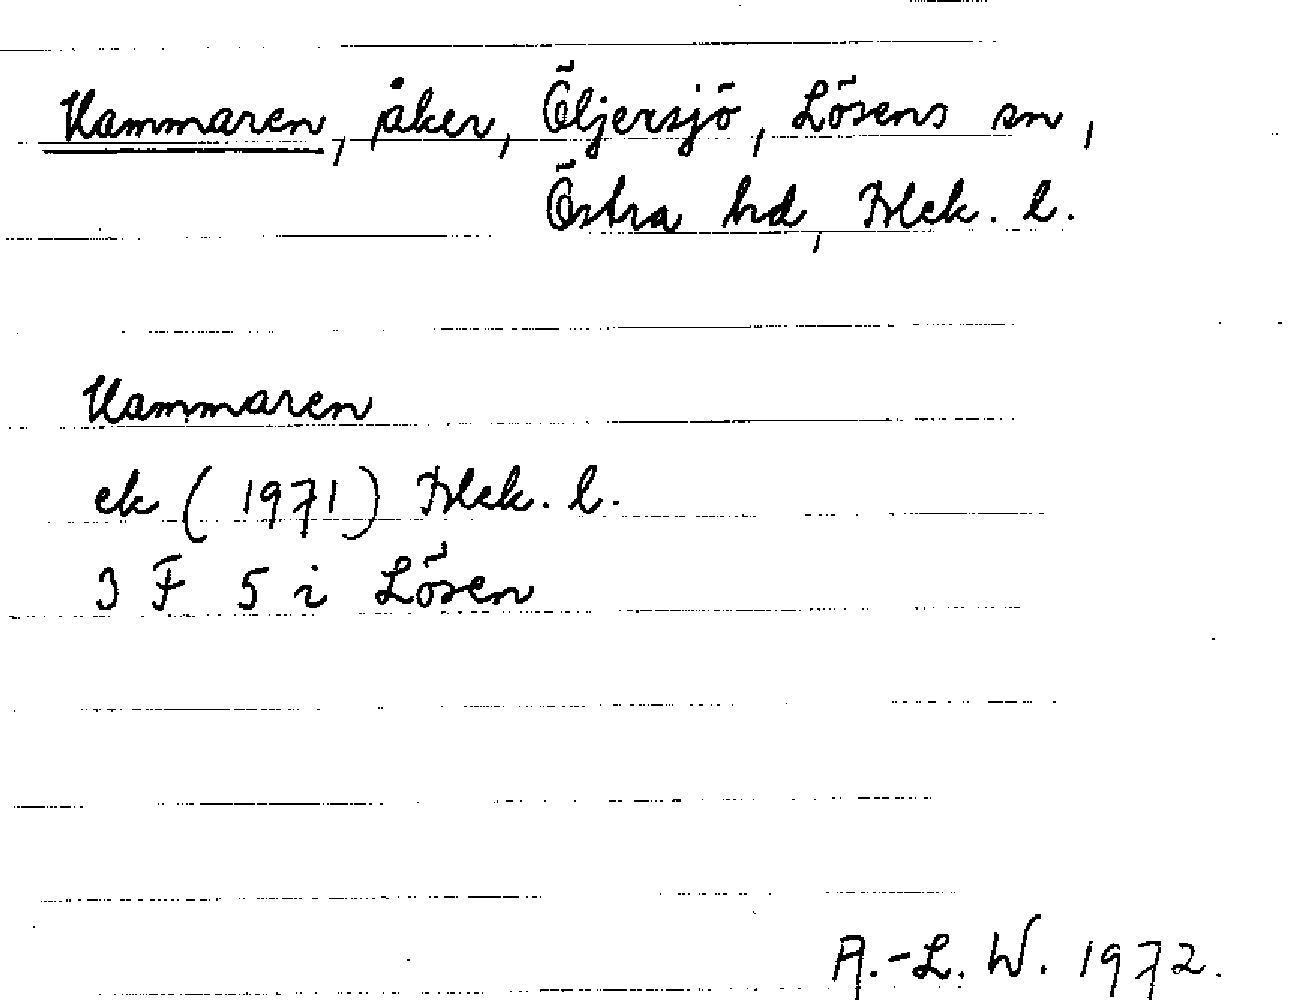 Kammaren, åker, Öljersjö, Lösens sn,
Östra hd, Blek. l.
Kammaren
ek (1971) Blek. l.
3 F 5 i Lösen
A.-L. W. 1972.